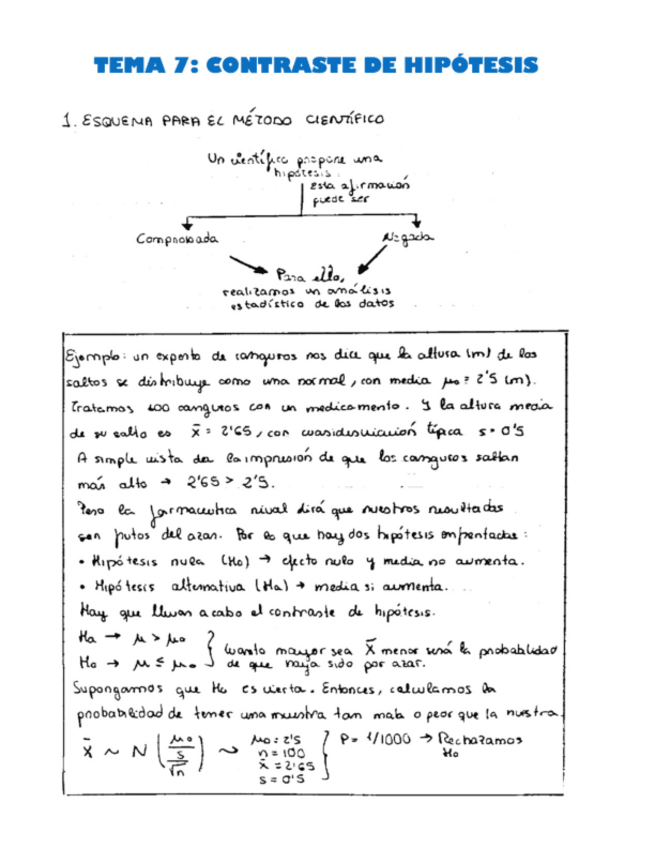 TEMA 7: CONTRASTE DE HIPÓTESIS
1. ESQUEMA PARA EL MÉTODO CIENTÍFICO
Un científico propone una
hipótesis.
Esta afirmación
puede ser
Comprobada
Negada
Para ello,
realizamos un análisis
estadístico de los datos
Ejemplo: un experto de canguros nos dice que la altura (m) de los
saltos se distribuye como una normal, con media μ₀ = 2'5 (m).
Tratamos 100 canguros con un medicamento. Y la altura media
de su salto es x̄ = 2'65, con cuasidesviación típica s = 0'5
A simple vista da la impresión de que los canguros saltan
más alto → 2'65 > 2'5.
Pero la farmaceutica rival dirá que nuestros resultados
son frutos del azar. Por lo que hay dos hipótesis enfrentadas:
• Hipótesis nula (H₀) → efecto nulo y media no aumenta.
• Hipótesis alternativa (Ha) → media si aumenta.
Hay que llevar a cabo el contraste de hipótesis.
Ha → μ > μ₀
H₀ → μ ≤ μ₀
} Cuanto mayor sea x̄ menor será la probabilidad
de que haya sido por azar.
Supongamos que H₀ es cierta. Entonces, calculamos la
probabilidad de tener una muestra tan mala o peor que la nuestra.
x̄ ~ N (μ₀ / s / √n) ~ μ₀ = 2'5
n = 100
x̄ = 2'65
s = 0'5
} P = 1/1000 → Rechazamos
H₀